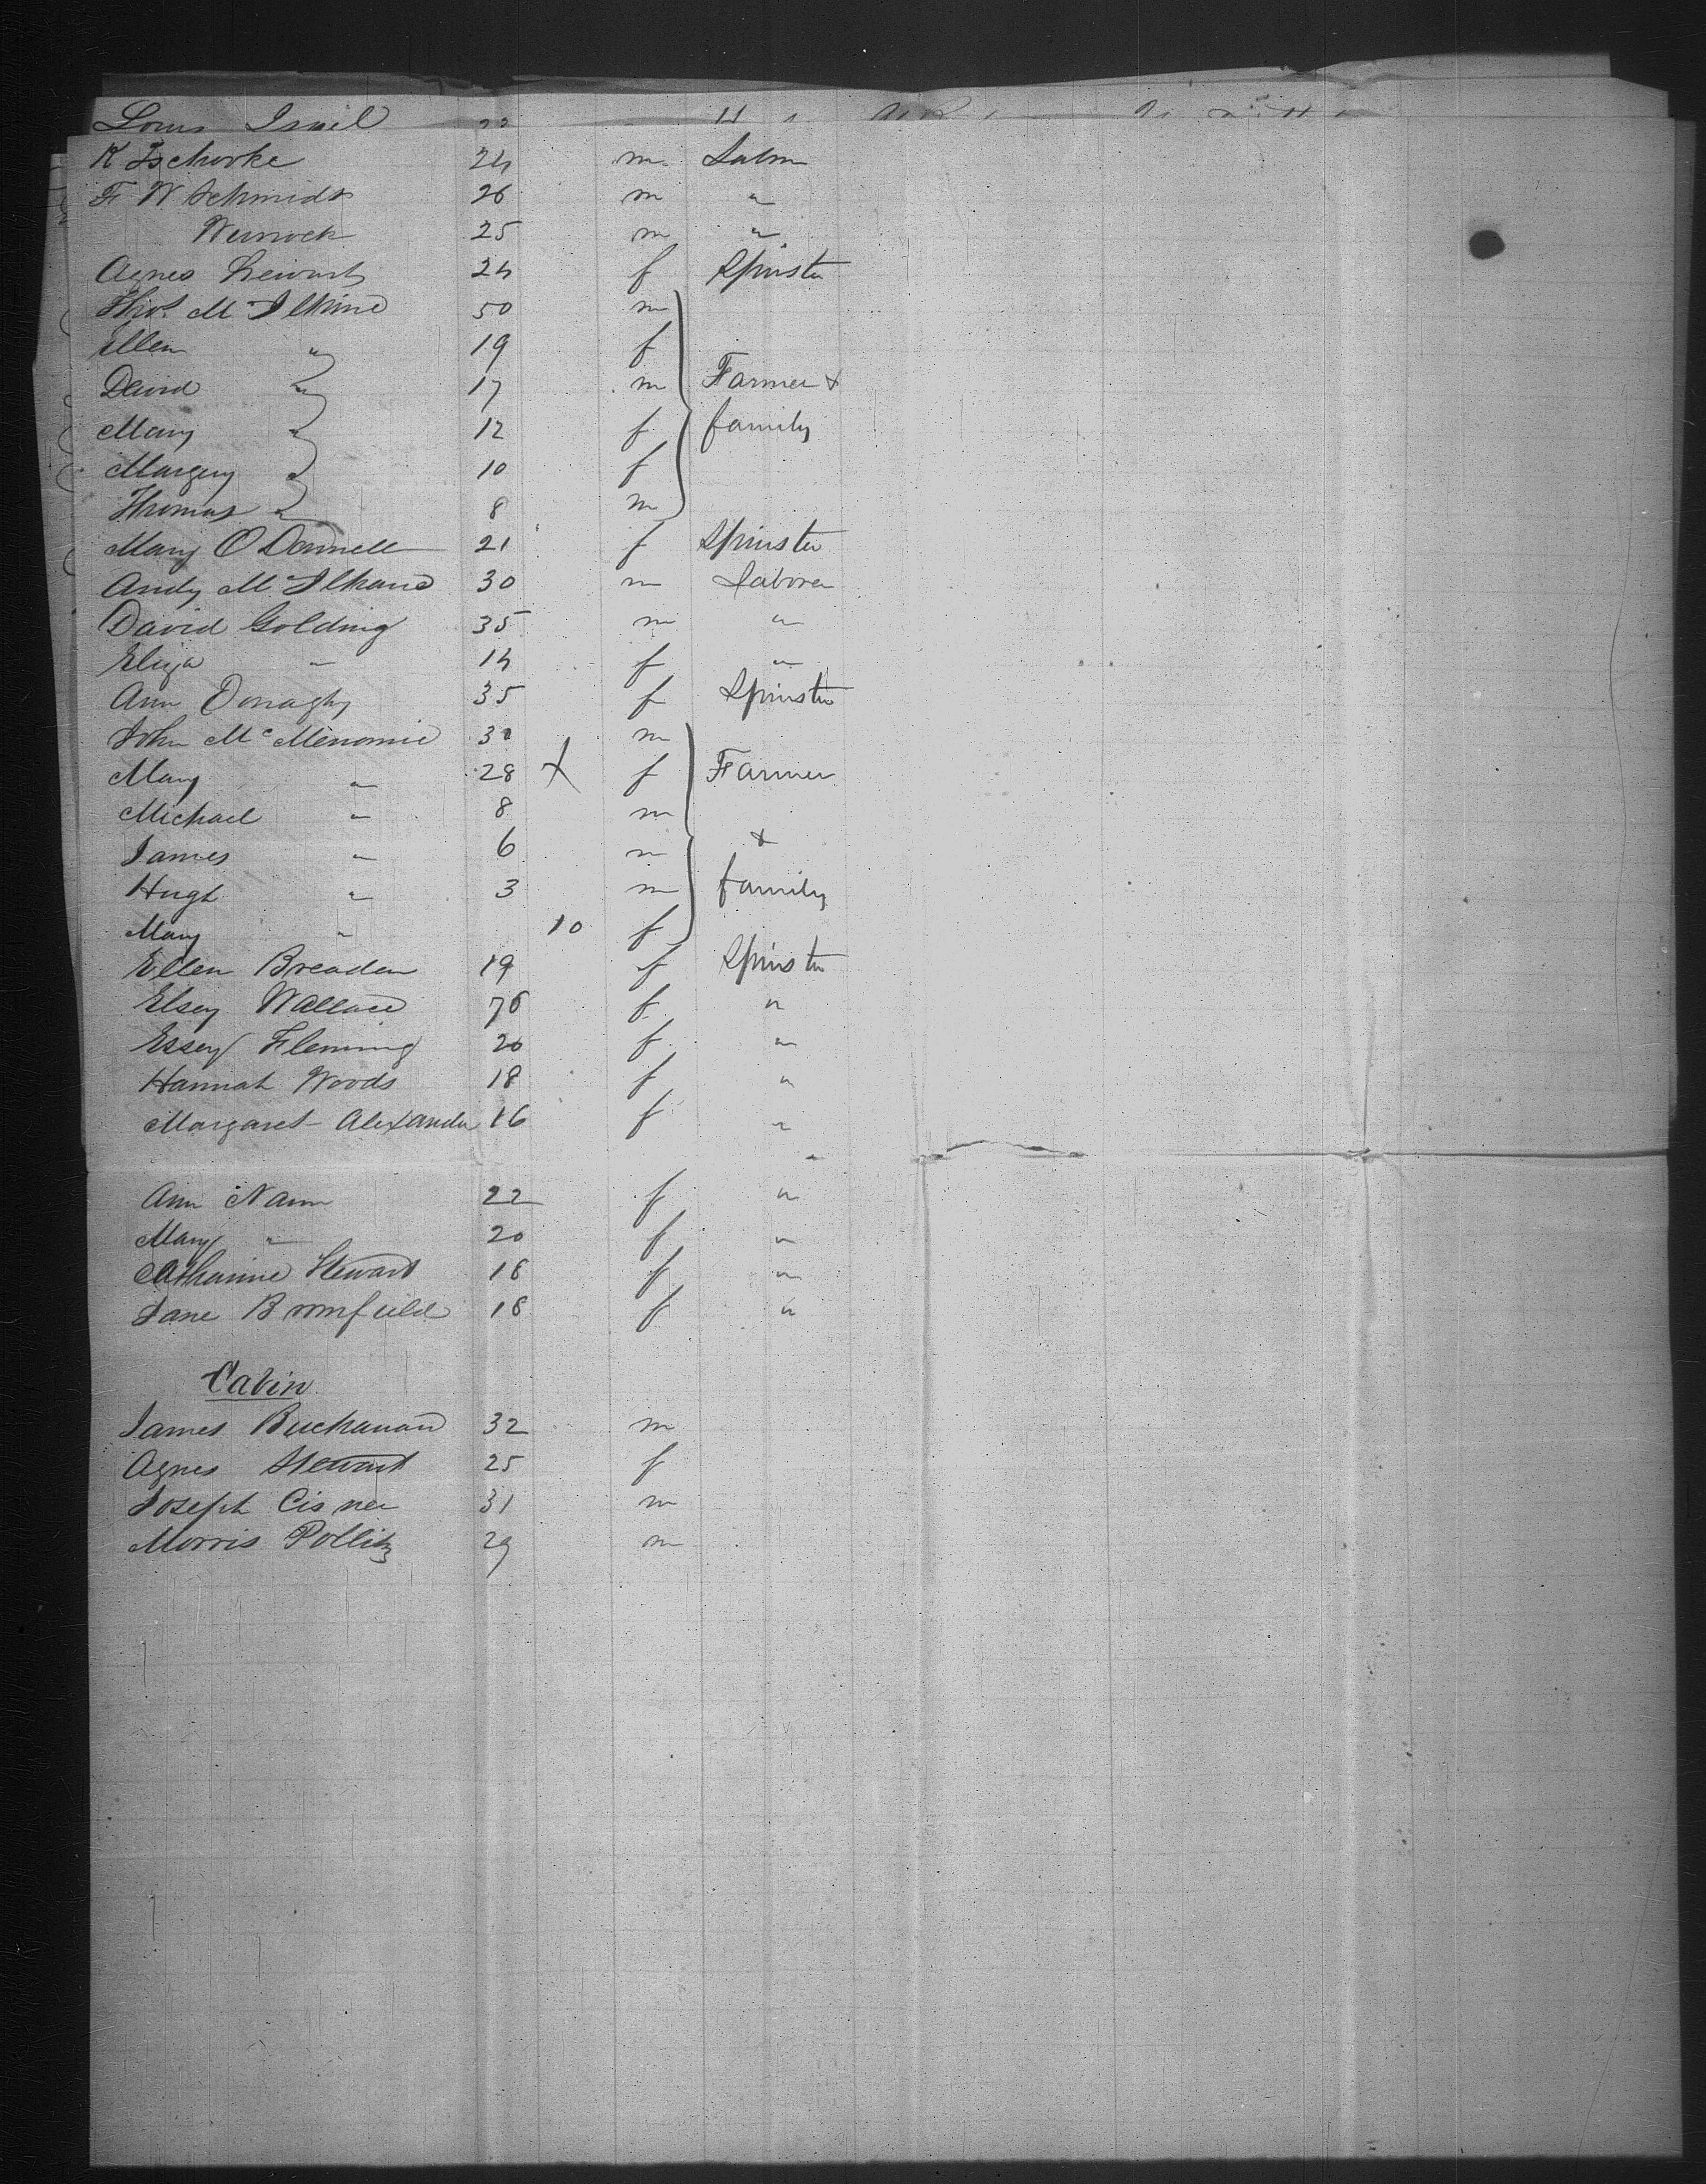 Louis Israel 22
K Tschirke 24 m Labor
F W Schmidt 26 m "
Wernock 25 m "
Agnes Stewart 24 f Spinster
Thos. McIlhine 50 m
Ellen " 19 f
David " 17 m Farmer +
Mary " 12 f family
Margery " 10 f
Thomas " 8 m
Mary O Donnell 21 f Spinster
Andy McIlhane 30 m Laborer
David Golding 35 m "
Eliza " 14 f "
Ann Donaghy 35 f Spinster
John McMenomie 30 m
Mary " 28 + f Farmer
Michael " 8 m
James " 6 m +
Hugh " 3 m family
Mary " 10 f
Ellen Breaden 19 f Spinster
Elsey Wallace 76 f "
Essey Fleming 20 f "
Hannah Woods 18 f "
Margaret Alexander 16 f "
Ann Nann 22 f "
Mary " 20 f "
Catharine Stewart 18 f "
Jane Bromfield 18 f "
Cabin
James Buchanan 32 m
Agnes Stewart 25 f
Joseph Cisner 31 m
Morris Pollitz 29 m